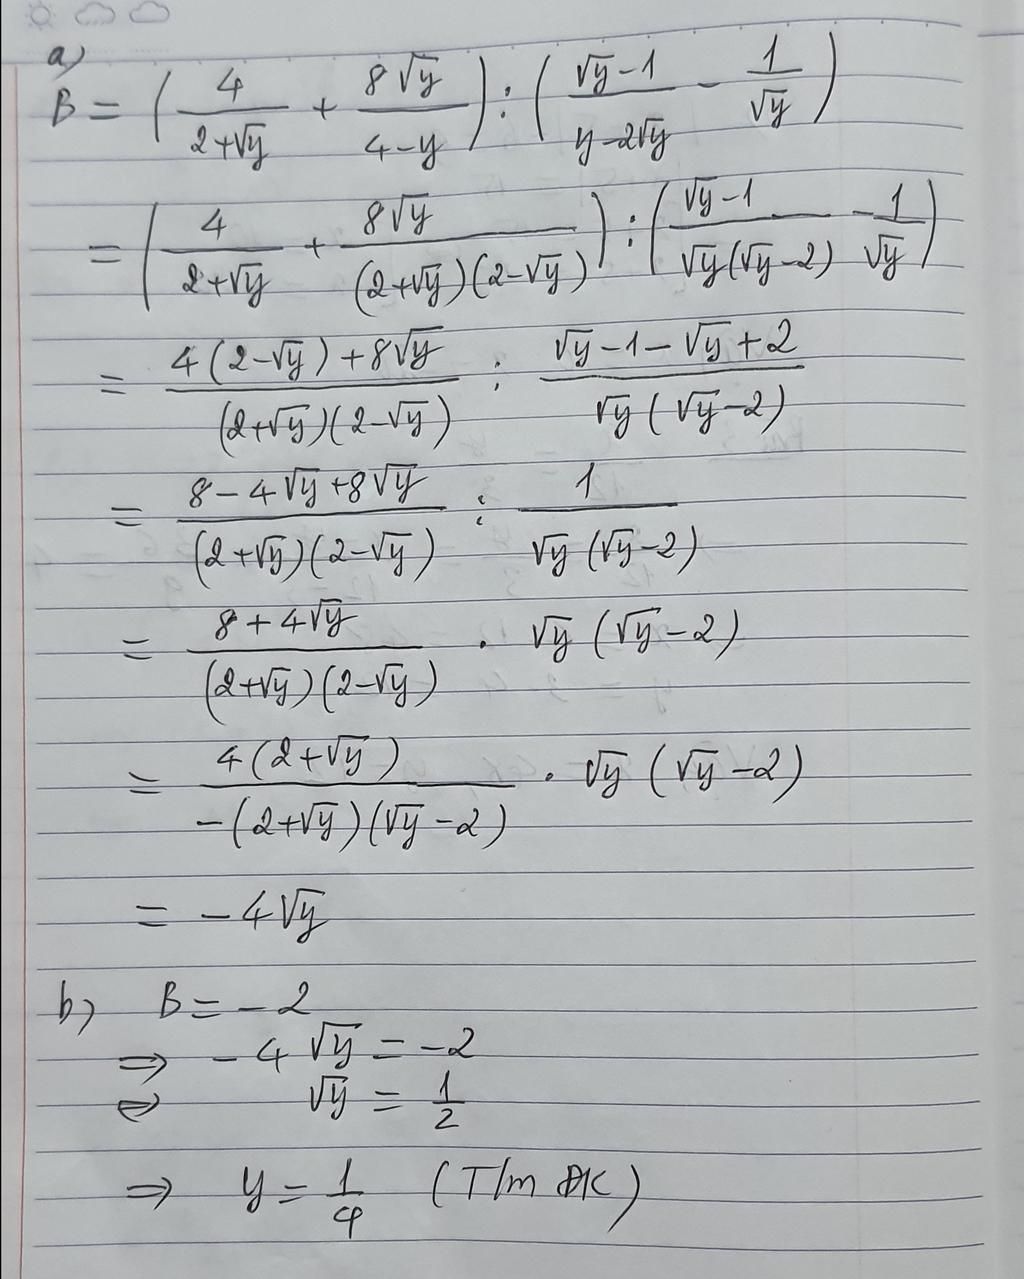 a)
B = ( 4/(2+√y) + 8√y/(4-y) ) : ( (√y-1)/(y-2√y) - 1/√y )
= ( 4/(2+√y) + 8√y/((2+√y)(2-√y)) ) : ( (√y-1)/(√y(√y-2)) - 1/√y )
= (4(2-√y)+8√y)/((2+√y)(2-√y)) : (√y-1-√y+2)/(√y(√y-2))
= (8-4√y+8√y)/((2+√y)(2-√y)) : 1/(√y(√y-2))
= (8+4√y)/((2+√y)(2-√y)) . √y(√y-2)
= 4(2+√y)/(-(2+√y)(√y-2)) . √y(√y-2)
= -4√y
b) B = -2
⇒ -4√y = -2
⇔ √y = 1/2
⇒ y = 1/4 (T/m ĐK)